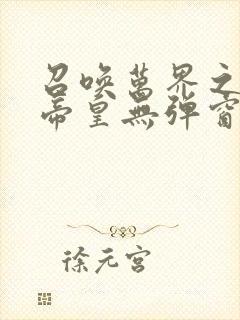 召唤萬界之
帝皇無弹窗
徐元宫